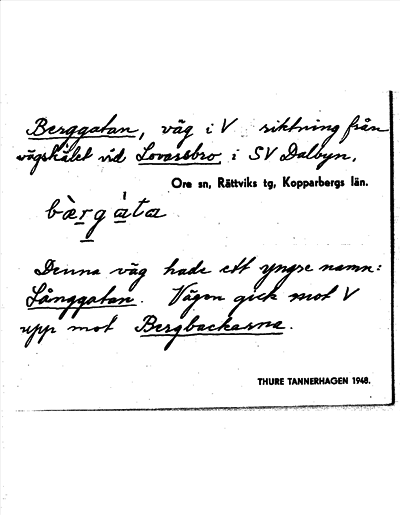 Berggatan, väg i V riktning från
vägskälet vid Lovarsbro i SV Dalbyn.
Ore sn, Rättviks tg, Kopparbergs län.
bæ̀rg áta
Denna väg hade ett yngre namn:
Långgatan. Vägen gick mot V
upp mot Bergbackarna.
THURE TANNERHAGEN 1948.